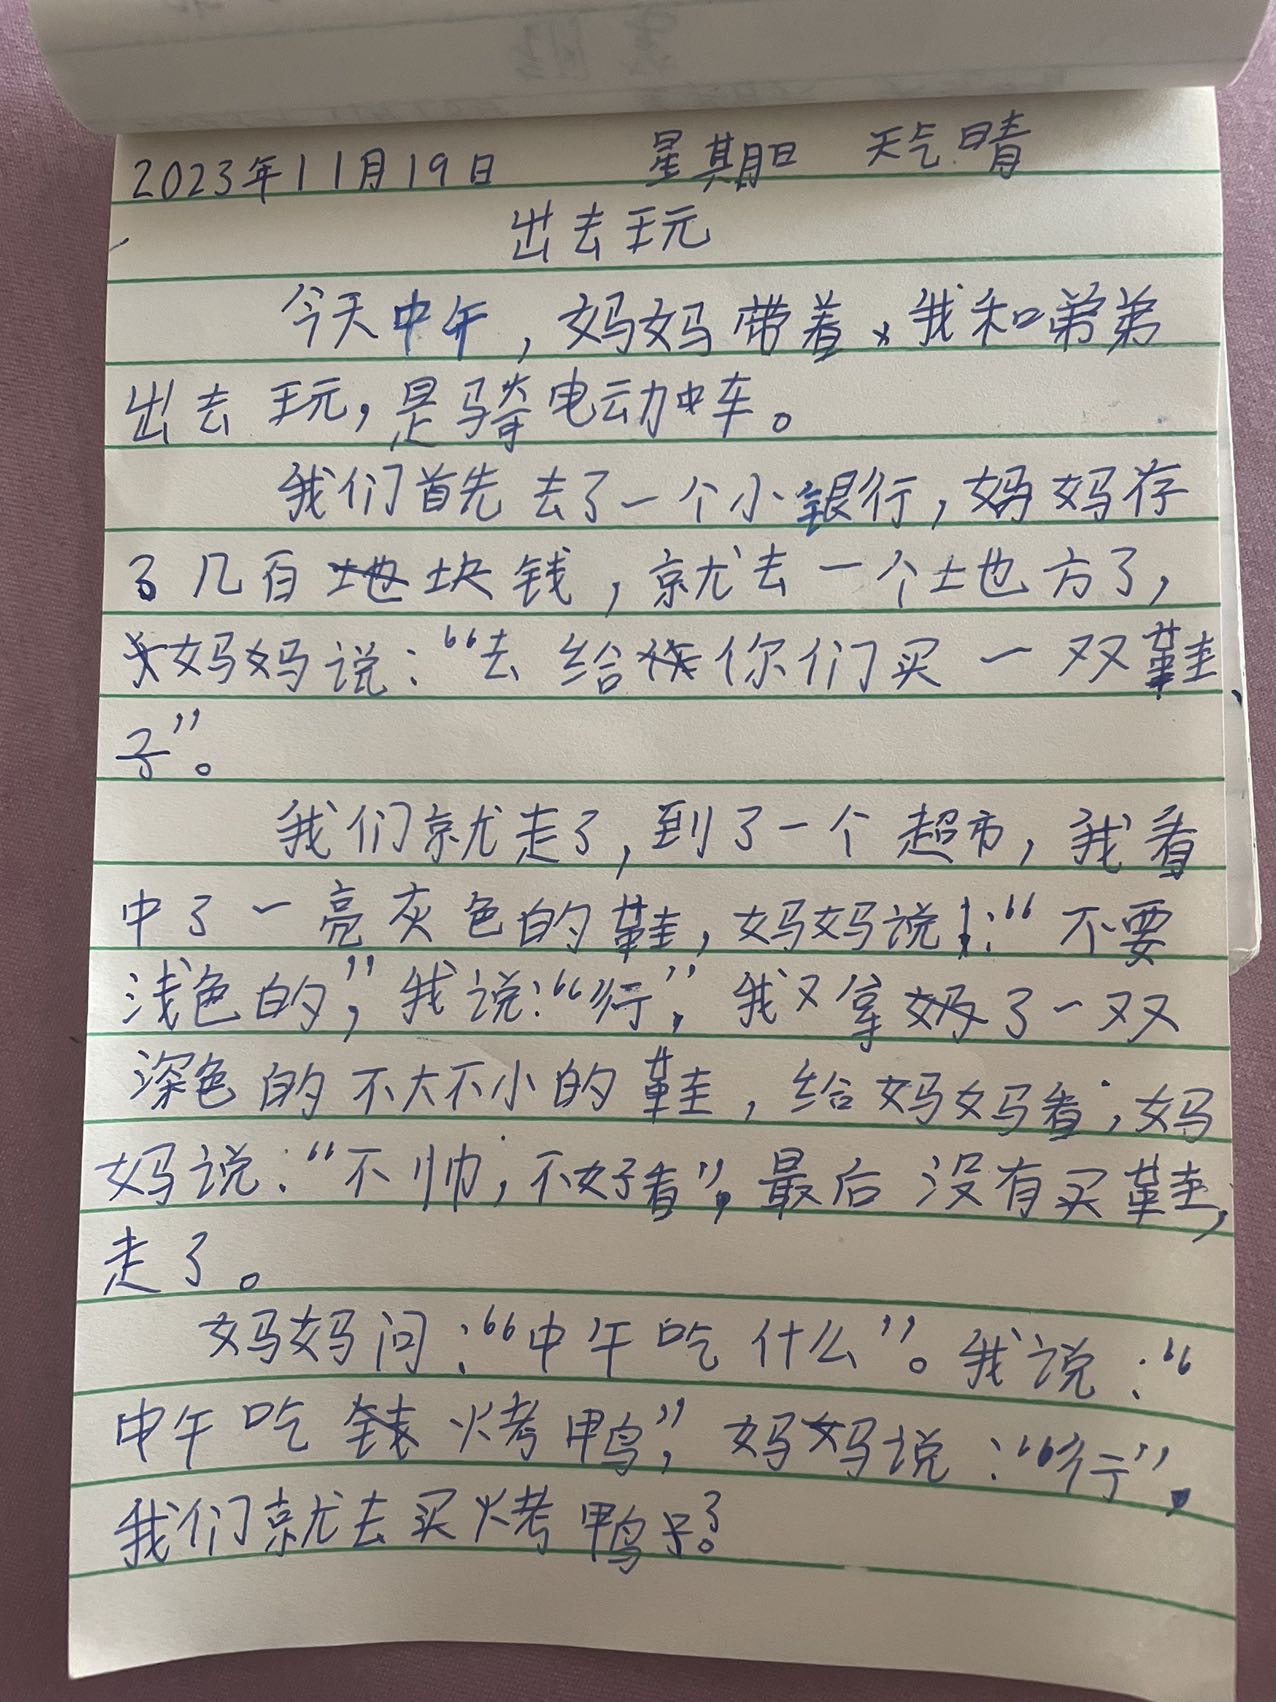 2023年11月19日 星期日 天气晴
出去玩
今天中午,妈妈带着我和弟弟
出去玩,是骑电动车。
我们首先去了一个小银行,妈妈存
了几百块钱,就去一个地方了,
妈妈说:“去给你们买一双鞋
子”。
我们就走了,到了一个超市,我看
中了一亮灰色的鞋,妈妈说:“不要
浅色的”,我说:“行”,我又拿了一双
深色的不大不小的鞋,给妈妈看,妈
妈说:“不帅,不好看”,最后没有买鞋,
走了。
妈妈问:“中午吃什么”。我说:“
中午吃烤鸭”,妈妈说:“行”,
我们就去买烤鸭了。